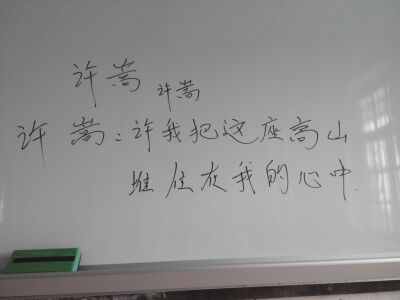 许嵩 许嵩
许嵩:许我把这座高山
堆住在我的心中.